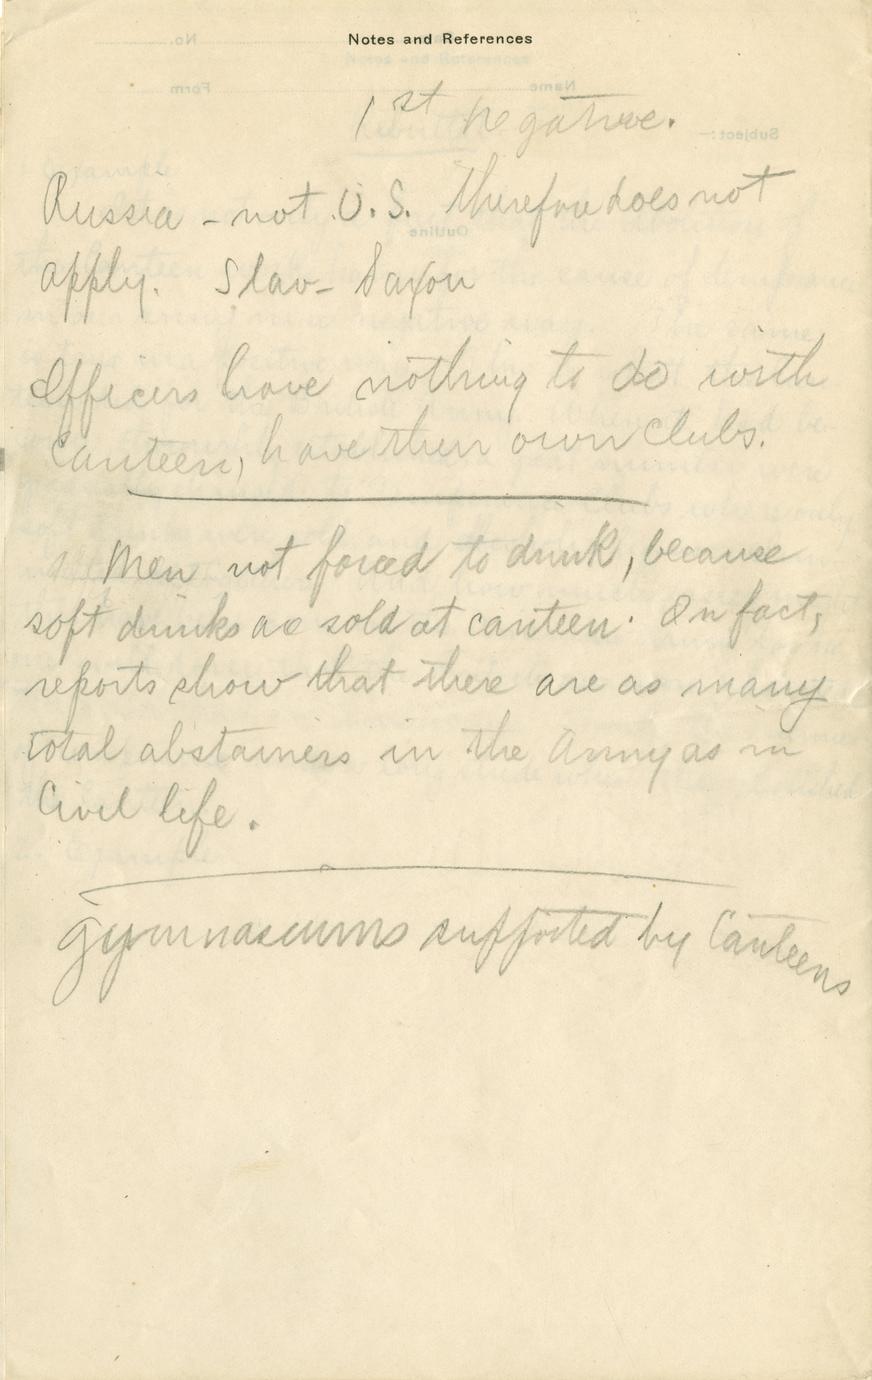 Notes and References
1st Negative.
Russia - not U.S. therefore does not
apply. Slav - Saxon
Officers have nothing to do with
Canteen, have their own clubs.
Men not forced to drink, because
soft drinks are sold at canteen. In fact,
reports show that there are as many
total abstainers in the Army as in
Civil life.
Gymnasiums supported by Canteens